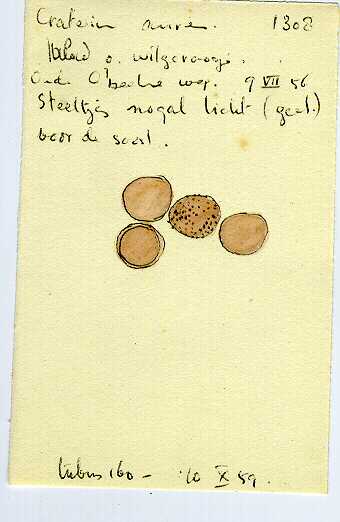 Craterium aure. 1308
Blad o. wilgeroosje.
Oude weg. 9 VII 56
Steeltjes nogal licht (geel.)
voor de soort.
tubus 160 - 10 X 59.